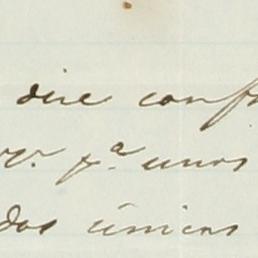 dice conf
pª unos
dos únicos